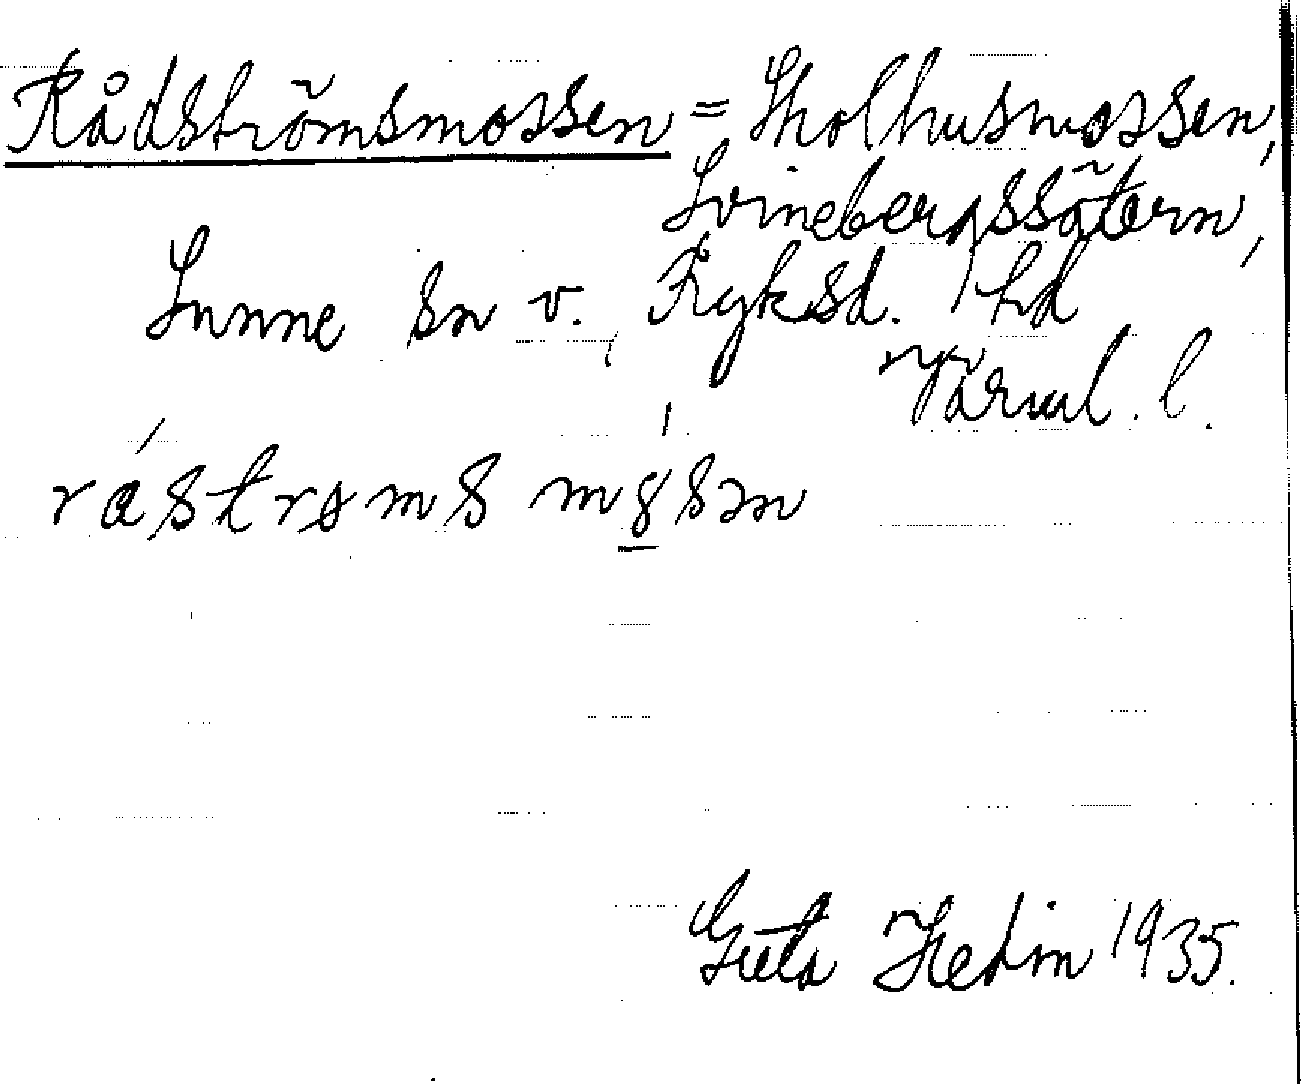 Rådströmsmossen = Skolhusmossen,
Svinebergssätern,
Sunne sn v. Fryksd. hd
Värml. l.
råstrsms mɞsən
Greta Hedin 1935.